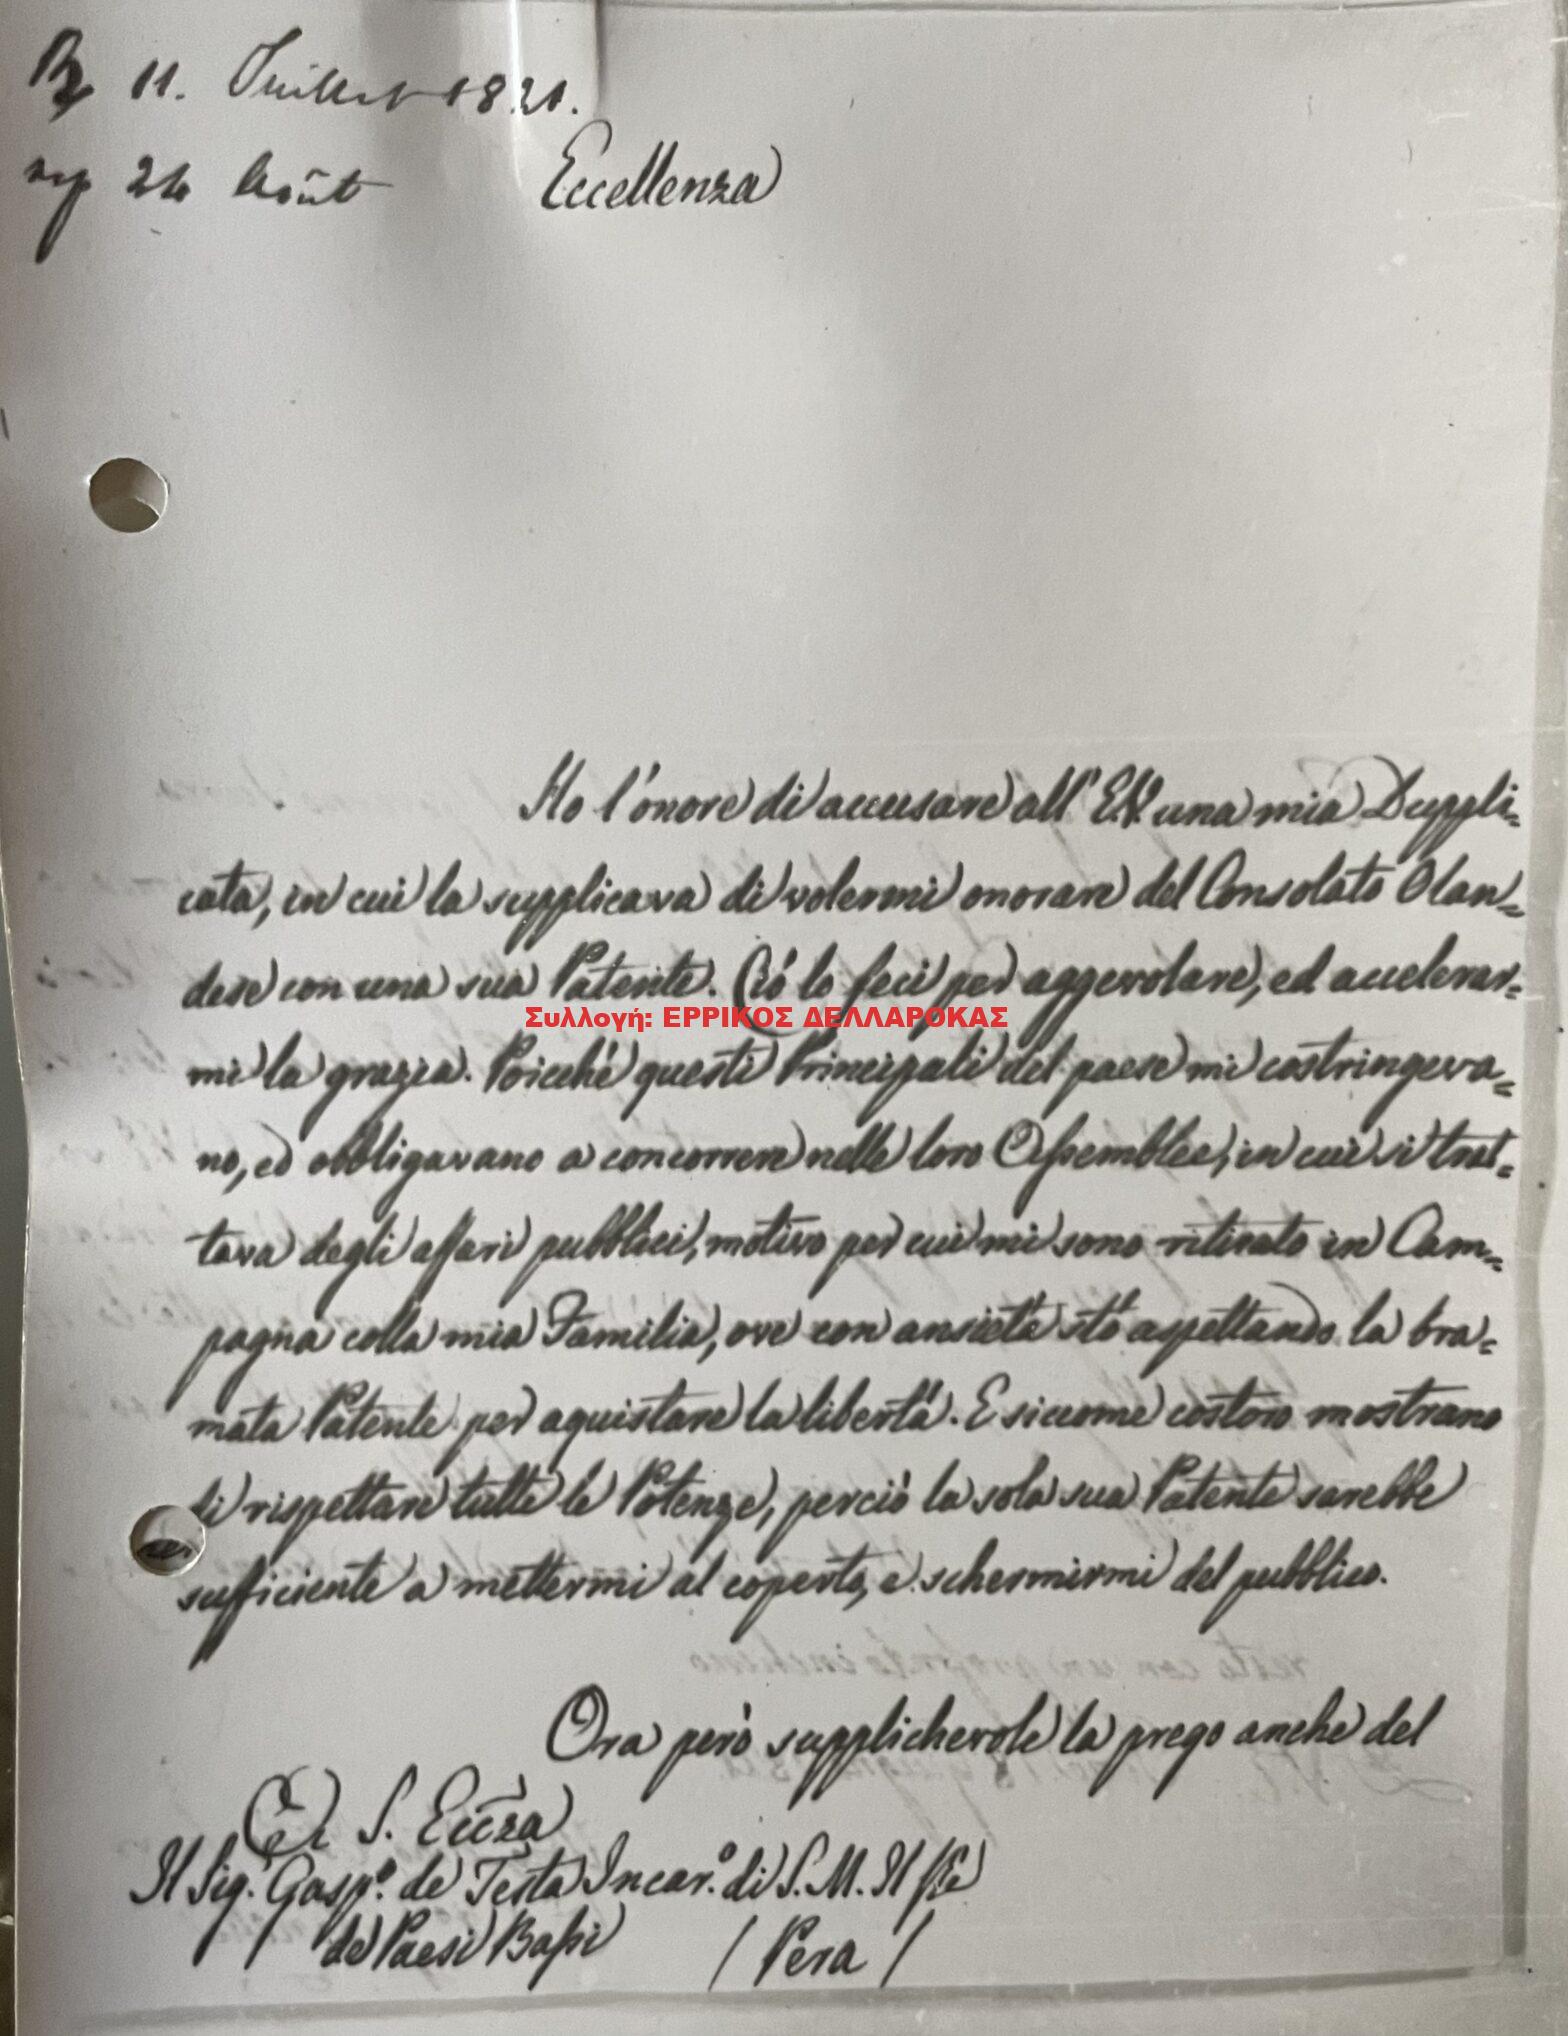 11. Juillet 1821.
rep 24 Août
Eccellenza
Ho l'onore di accusare all' E.V. una mia Duppli=
cata, in cui la supplicava di volermi onorare del Consolato Olan=
dese con una sua Patente. Ció lo feci per aggevolare, ed accelerar=
mi la grazia. Poicché questi Principali del paese mi costringeva=
no, ed obbligavano a concorrere nelle loro Assemblee, in cui si trat=
tava degli affari pubblici, motivo per cui mi sono ritirato in Cam=
pagna colla mia Familia, ove con ansietà stò aspettando la bra=
mata Patente per aquistare la libertà. E siccome costoro mostrano
di rispettare tutte le Potenze, perciò la sola sua Patente sarebbe
sufficiente a mettermi al coperto, e schermirmi del pubblico.
Ora però supplichevole la prego anche del
S. Eccza
Il Sig. Gaspo. de Testa Incaro. di S. M. Il Re
de Paesi Bassi / Pera /
Συλλογή: ΕΡΡΙΚΟΣ ΔΕΛΛΑΡΟΚΑΣ